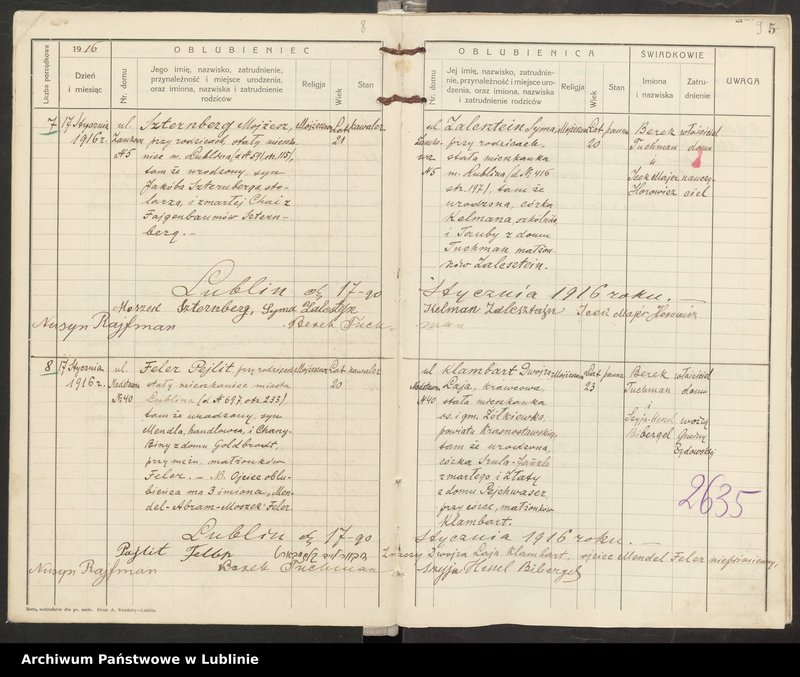 8
9 5
Liczba porządkowa
1916
Dzień
i miesiąc
Nr. domu
OBLUBIENIEC
Jego imię, nazwisko, zatrudnienie,
przynależność i miejsce urodzenia,
oraz imiona, nazwiska i zatrudnienie
rodziców
Religja
Wiek
Stan
OBLUBIENICA
Nr. domu
Jej imię, nazwisko, zatrudnie-
nie, przynależność i miejsce uro-
dzenia, oraz imiona, nazwiska
i zatrudnienie rodziców
Religja
Wiek
Stan
ŚWIADKOWIE
Imiona
i nazwiska
Zatru-
dnienie
UWAGA
7
17 Stycznia
1916 r.
ul.
Zamkowa
№ 5
Szternberg Mojżesz,
przy rodzicach, stały miesz-
m. Lublina (d. № 59, str. 115),
tam że urodzony, syn
Jakóba Szternberga sto-
larza, i zmarłej Chai z
Fajgenbaumów Sztern-
berg. —
Mojżeszow.
Lat
21
kawaler
ul.
Zamko-
wa
№ 5
Zalcstein Syma,
przy rodzicach,
stała mieszkanka
m. Lublina (d. № 416
str. 197), tam że
urodzona, córka
Kelmana, szkólnika
i Tauby z domu
Tuchman małżon-
ków Zalcsztein.
Mojżeszow.
Lat
20
panna
Berek
Tuchman
i
Icek Majer
Horowicz
właściciel
domu
nauczy-
ciel
Lublin d. 17-go Stycznia 1916 roku. —
Moszek Szternberg, Syma Zalcstejn Kelman Zalcsztajn Icek Majer Horowicz
Nusyn Rajfman Berek Tuchman
8
17 Stycznia
1916 r.
ul.
Nadstawna
№ 40
Feler Pejlit, przy rodzicach
stały mieszkaniec miasta
Lublina (d. № 697 str. 233)
tam że urodzony, syn
Mendla, handlowca, i Chany-
Biny z domu Goldbrodt,
przy mężu, małżonków
Feler. — N. Ojciec oblu-
bieńca ma 3 imiona „Men-
del-Abram-Moszek” Feler.
Mojżeszow.
Lat
20
kawaler
ul.
Nadstawna
№ 40
Klambart Dwojra
Łaja, krawcowa,
stała mieszkanka
os. i gm. Żółkiewka,
powiatu Krasnostawskiego
tam że urodzona,
córka Szula-Jankla
zmarłego i Złaty
z domu Pejchwaser,
przy córce, małżonków
Klambart.
Mojżeszow.
Lat
23
panna
Berek
Tuchman
i
Szyja-Henel
Bibergel
właściciel
domu
woźny
Gminy
Żydowskiej
2635
Lublin d. 17-go Stycznia 1916 roku. —
Pajlit Feller Dwojra Łaja Klambart, ojciec Mendel Feler niepiśmienny.
Nusyn Rajfman Berek Tuchman Szyja Henel Bibergel
Archiwum Państwowe w Lublinie